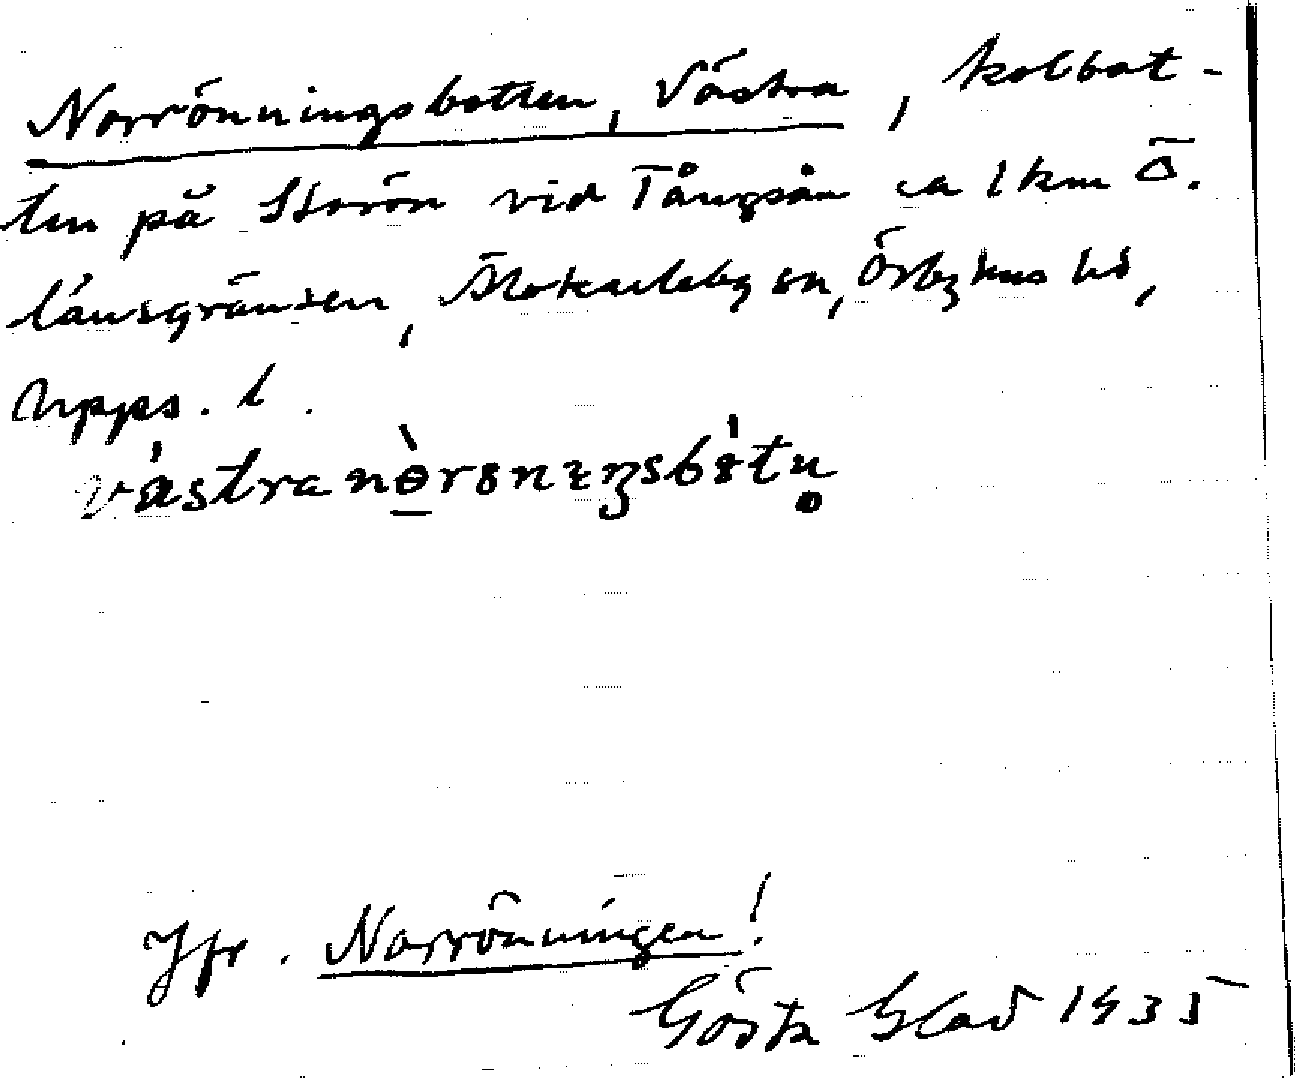 Norrönningsbotten, Västra, kolbot-
ten på Storön vid Tångsån ca 1 km Ö.
länsgränsen, Älvkarleby sn, Örbyhus hd,
Upps. l.
västra
Jfr. Norrönningen!
Gösta Blad 1935